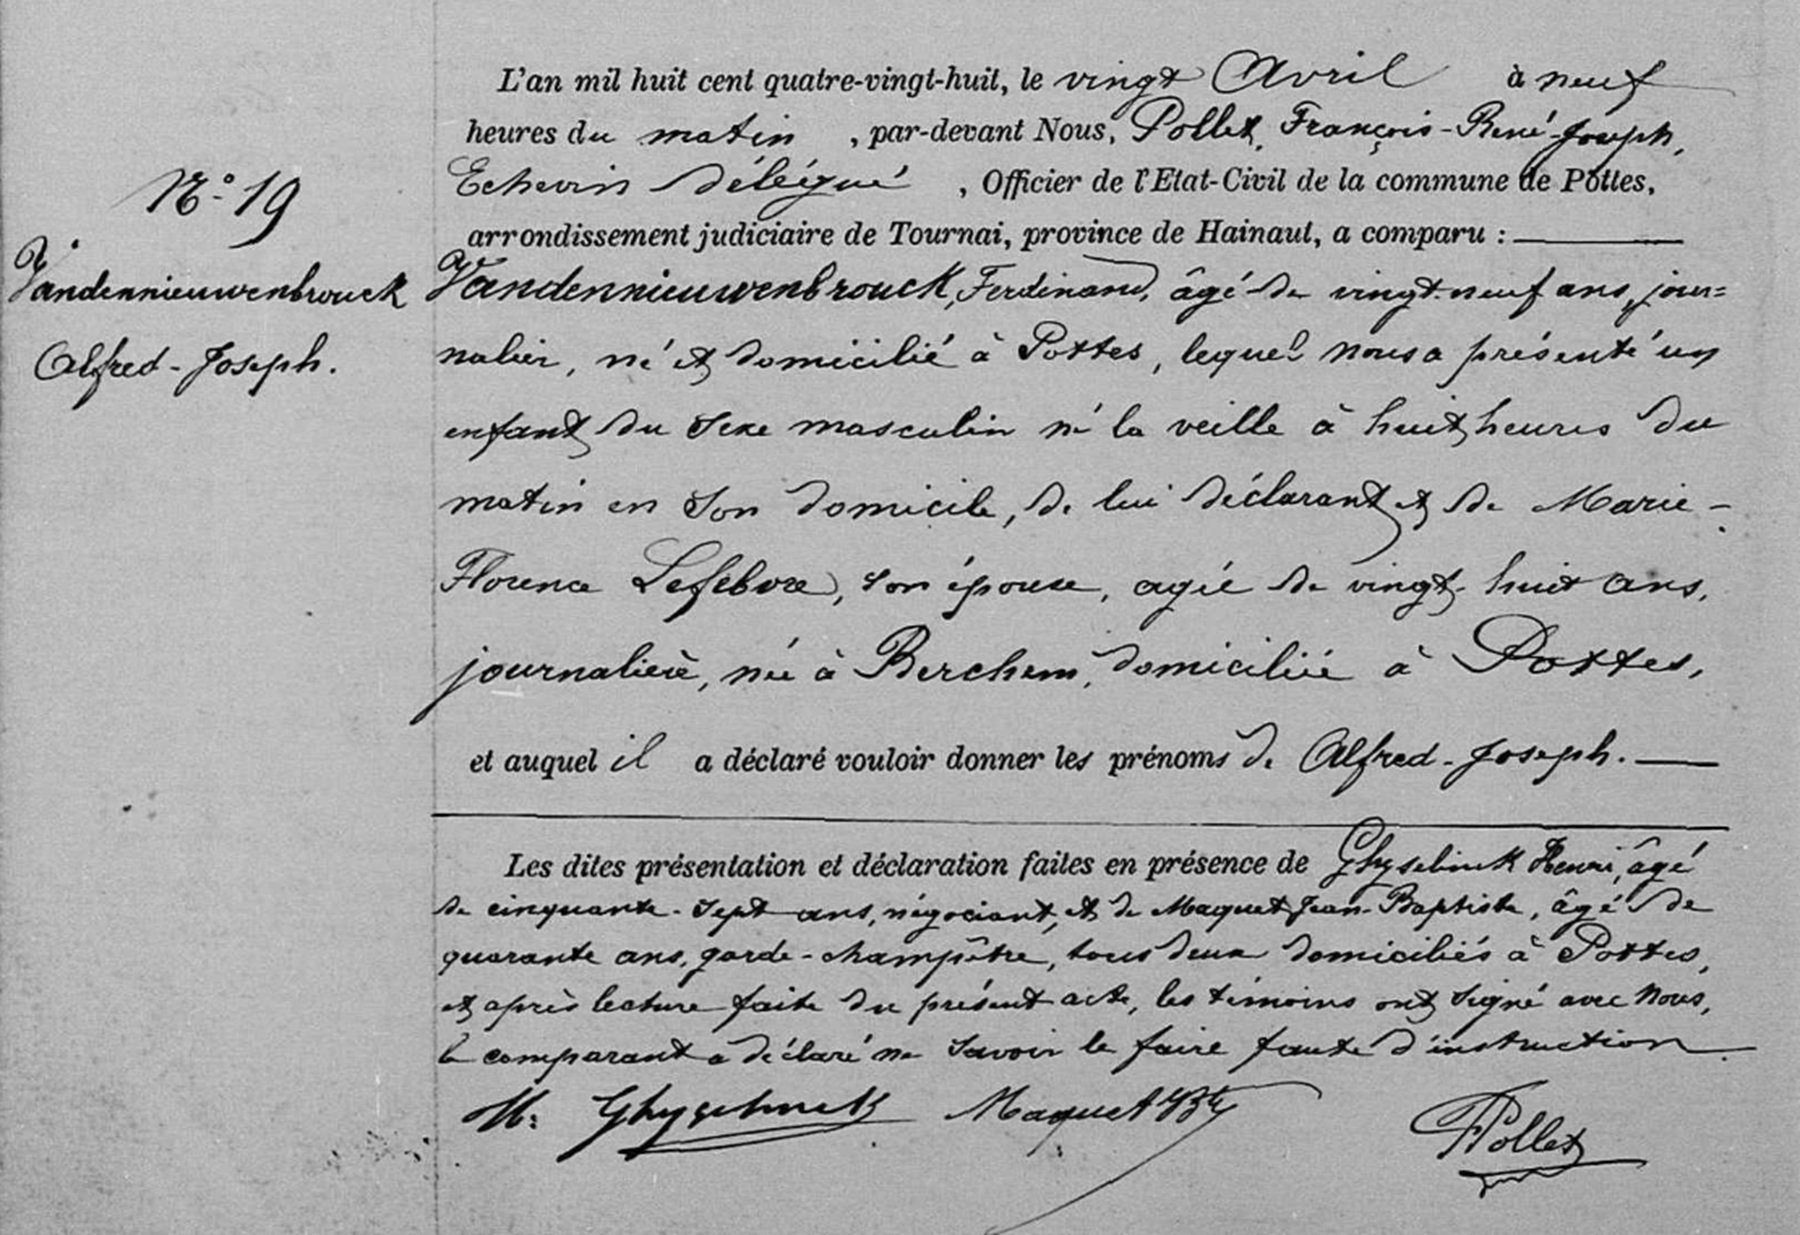 N° 19
Vandennieuwenbrouck
Alfred-Joseph.
L'an mil huit cent quatre-vingt-huit, le vingt Avril à neuf
heures du matin , par-devant Nous, Pollet, François-René-Joseph,
Echevin délégué , Officier de l'Etat-Civil de la commune de Pottes,
arrondissement judiciaire de Tournai, province de Hainaut, a comparu :
Vandennieuwenbrouck, Ferdinand, âgé de vingt-neuf ans, jour=
nalier, né et domicilié à Pottes, lequel nous a présenté un
enfant du sexe masculin né la veille à huit heures du
matin en son domicile, de lui déclarant et de Marie-
Florence Lefebvre, son épouse, agée de vingt-huit ans,
journalière, née à Berchem, domiciliée à Pottes,
et auquel il a déclaré vouloir donner les prénoms de Alfred-Joseph.
Les dites présentation et déclaration faites en présence de Ghyselinck Henri, âgé
de cinquante-sept ans, négociant, et de Maquet Jean-Baptiste, âgé de
quarante ans, garde-champêtre, tous deux domiciliés à Pottes,
et après lecture faite du présent acte, les témoins ont signé avec Nous,
le comparant a déclaré ne savoir le faire faute d'instruction.
H: Ghyselinck Maquet JBte
F Pollet